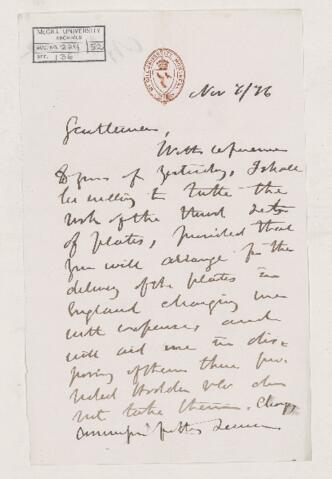 McGILL UNIVERSITY
ARCHIVES
ACC. NO. 224 / 52
REF. 136
Nov 7/76
Gentlemen,
With reference
to yours of yesterday, I shall
be willing to take the
risk of the third set
of plates, provided that
you will arrange for the
delivery of the plates in
England charging me
with expenses, and
will aid me in dis-
posing of them there pro-
vided Hodder & Co do
not take them.